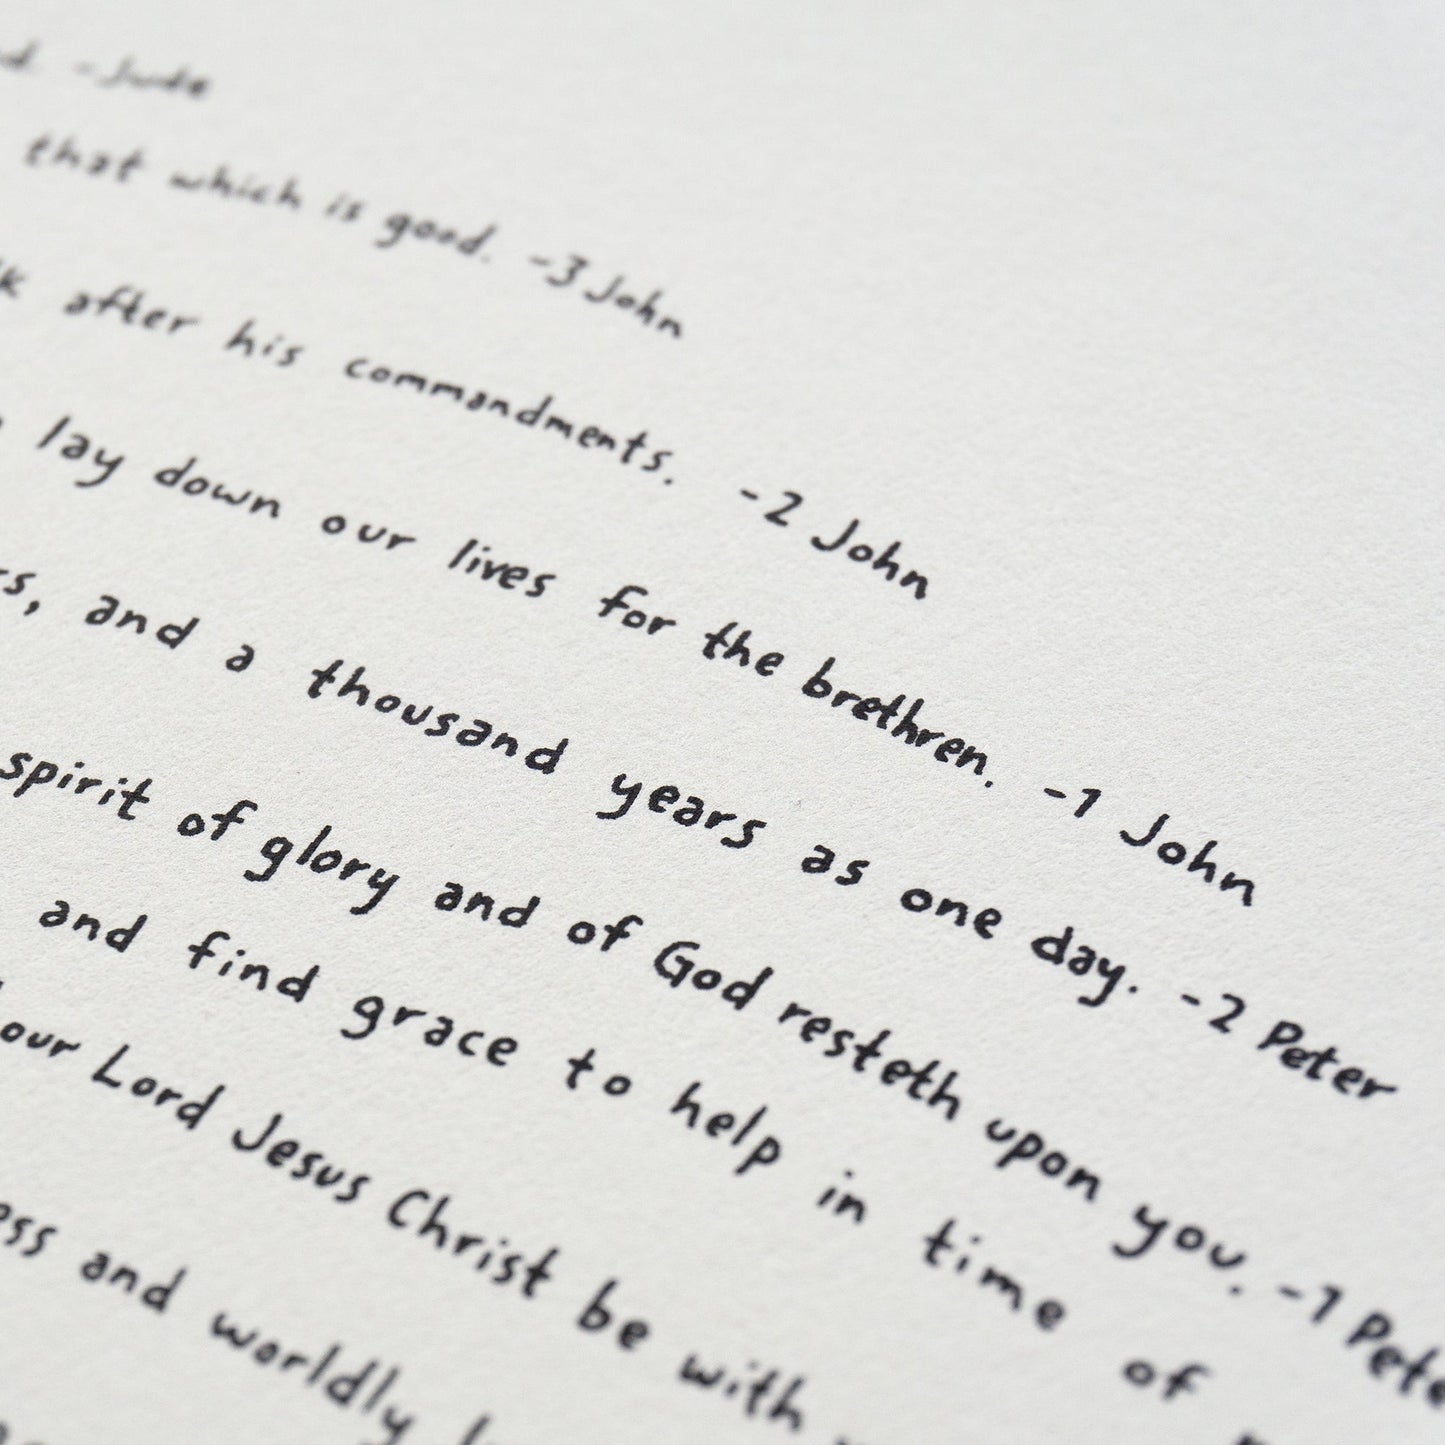 -Jude
that which is good. -3 John
after his commandments. -2 John
lay down our lives for the brethren. -1 John
and a thousand years as one day. -2 Peter
spirit of glory and of God resteth upon you. -1 Pete
and find grace to help in time of
our Lord Jesus Christ be with
ess and worldly